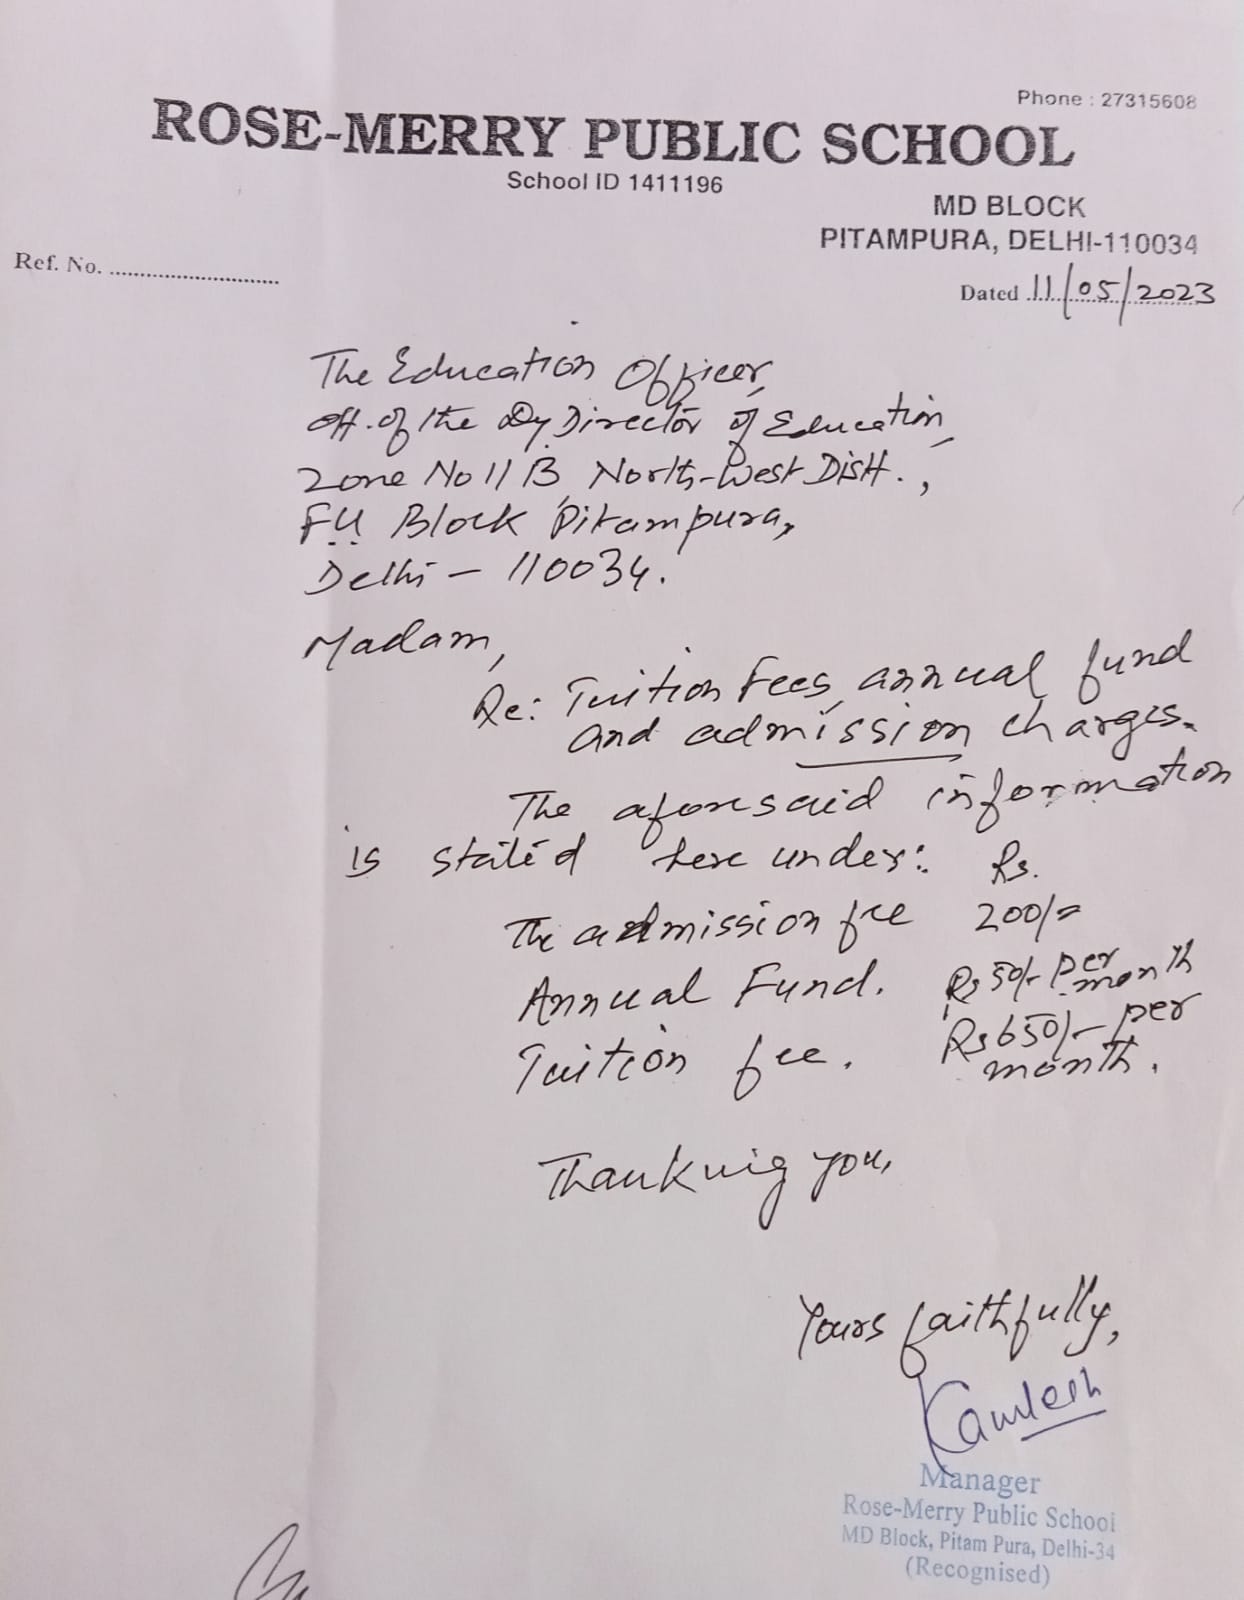 Phone : 27315608
ROSE-MERRY PUBLIC SCHOOL
School ID 1411196
MD BLOCK
PITAMPURA, DELHI-110034
Ref. No. ............................
Dated 11/05/2023
The Education Officer,
Off. of the Dy Director of Education,
Zone No 11 B, North-West Distt.,
F.U. Block Pitampura,
Delhi - 110034.
Madam,
Re: Tuition Fees, annual fund
and admission charges.
The aforesaid information
is stated here under: Rs.
The admission fee 200/=
Annual Fund. Rs 50/- per
month
Tuition fee. Rs 650/- per
month.
Thanking you,
Yours faithfully,
Kamlesh
Manager
Rose-Merry Public School
MD Block, Pitam Pura, Delhi-34
(Recognised)